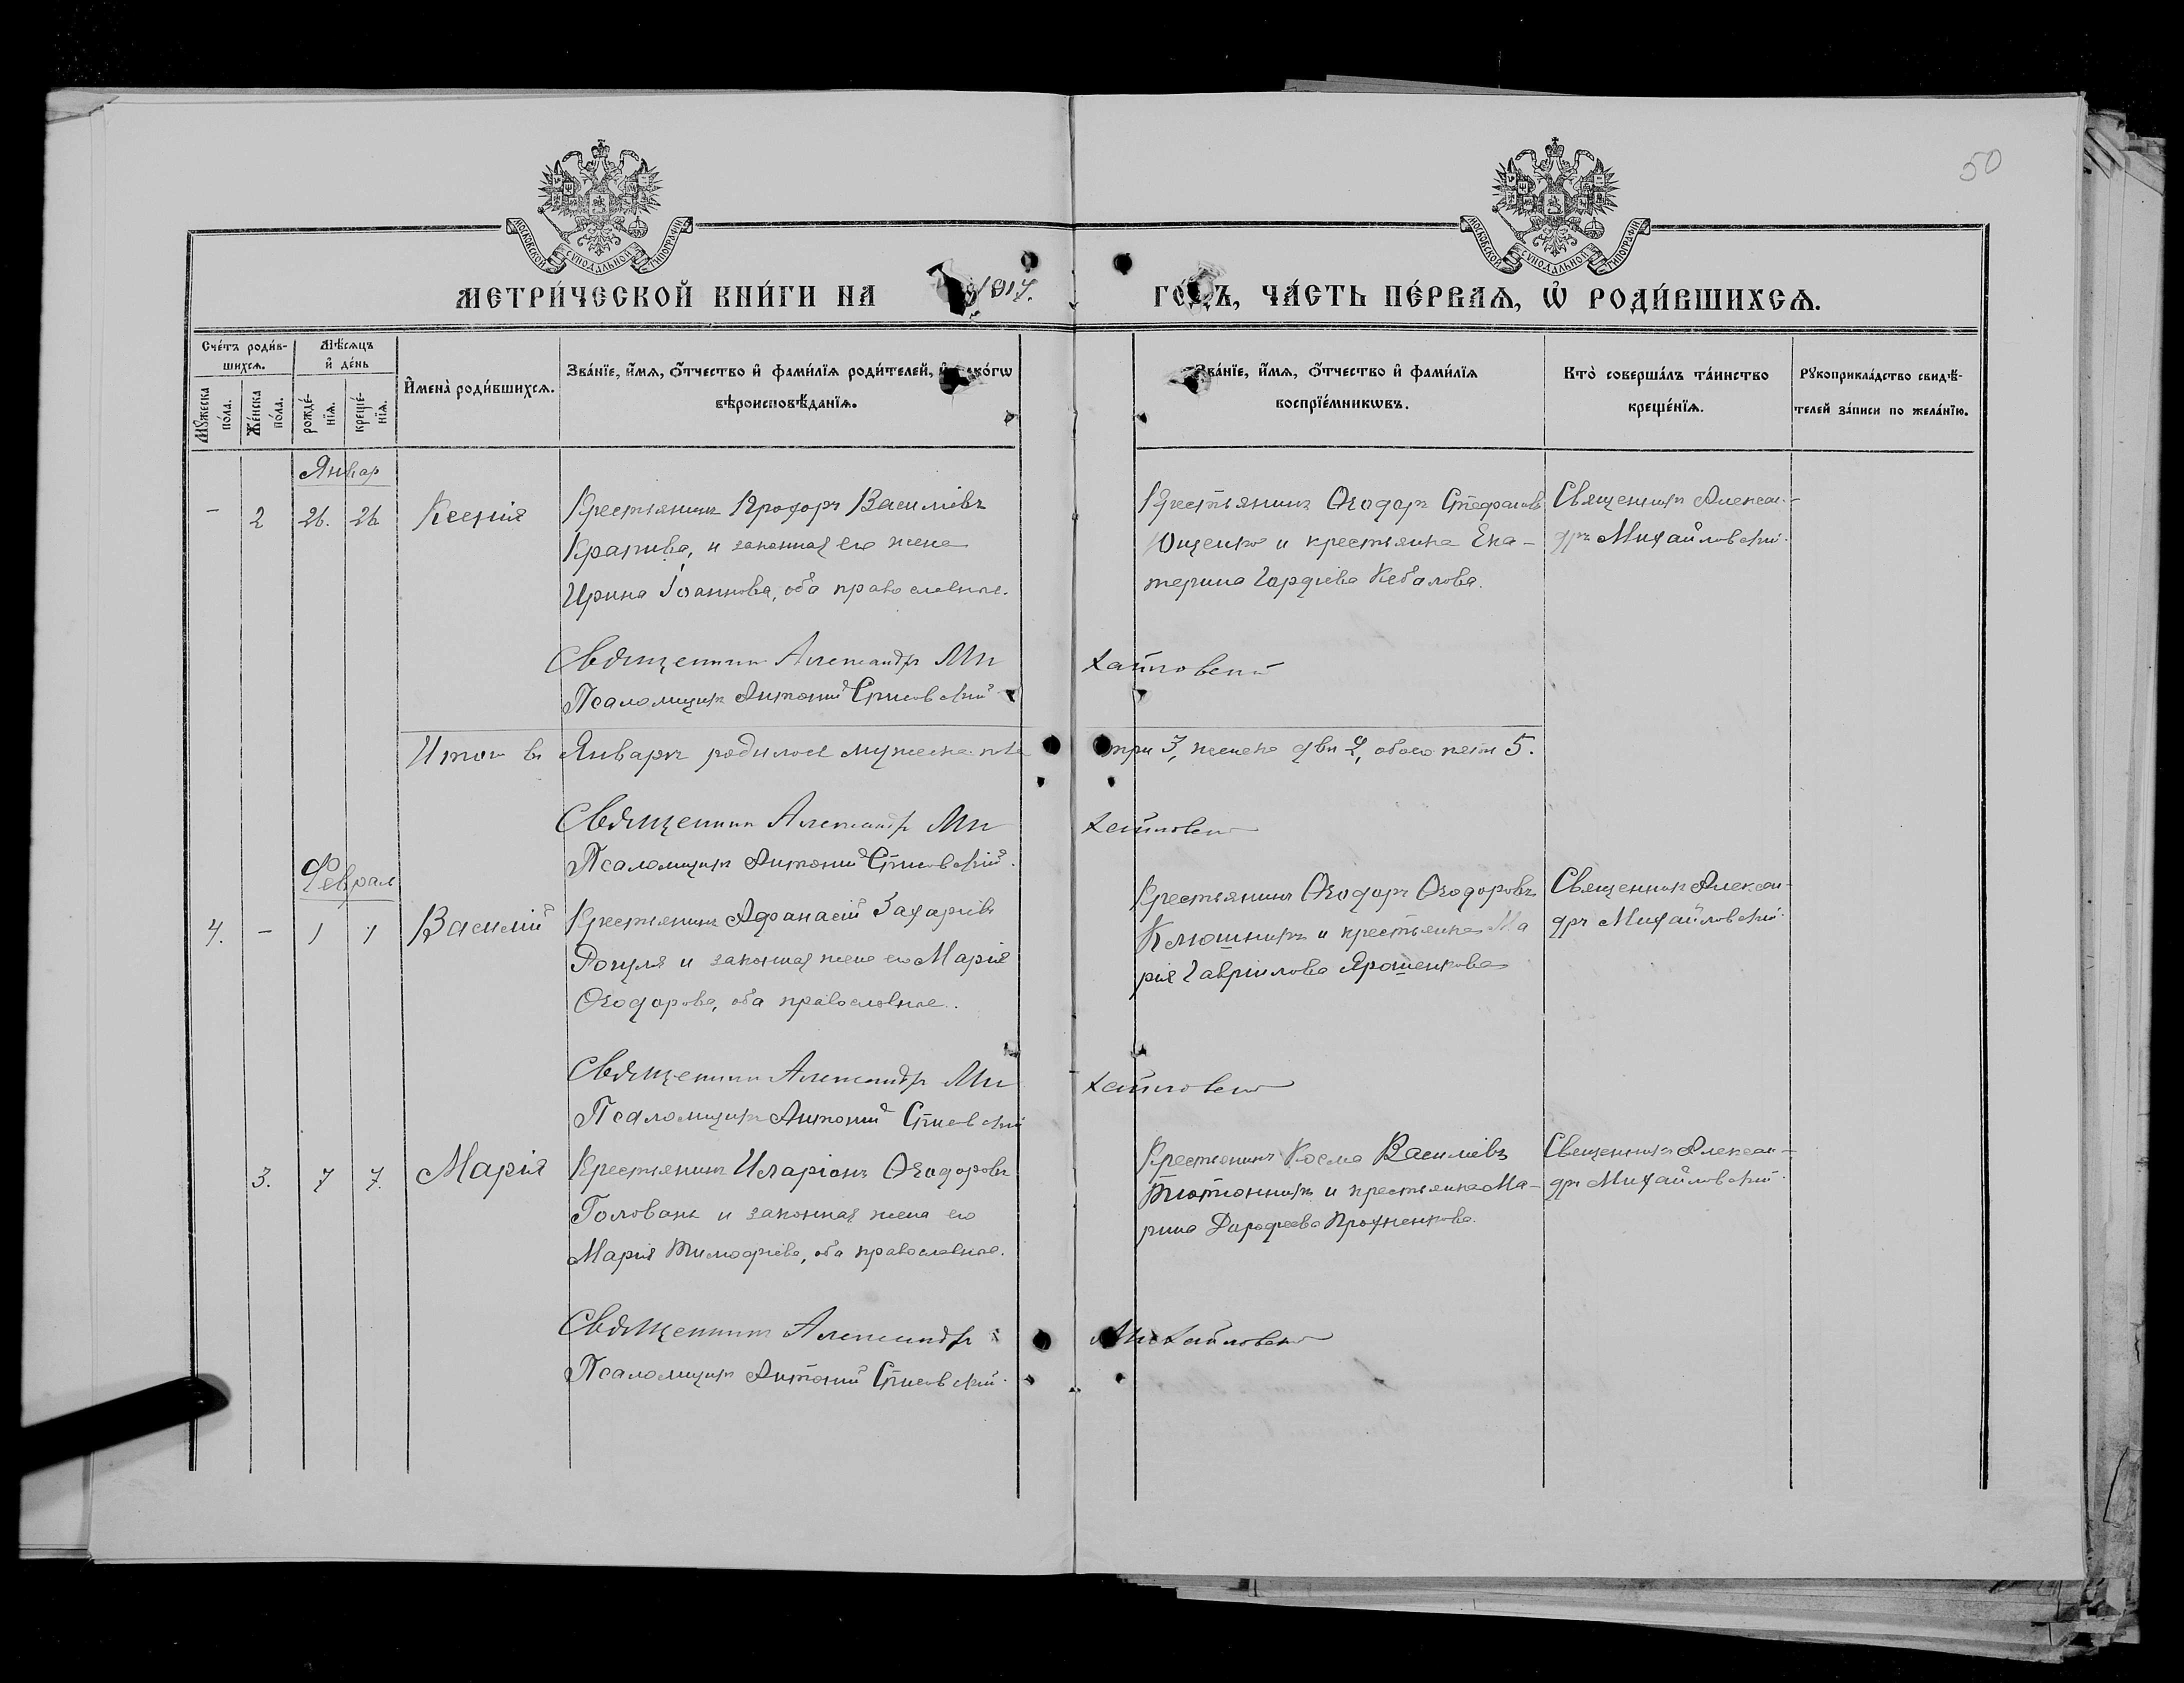 50
МОСКОВСКОЙ СѴНОДАЛЬНОЙ ТИПОГРАФІИ
МОСКОВСКОЙ СѴНОДАЛЬНОЙ ТИПОГРАФІИ
МЕТРИ́ЧЕСКОЙ КНИ́ГИ НА 1917. ГО́ДЪ, ЧА́СТЬ ПЕ́РВАѦ, Ѡ҆ РОДИ́ВШИХСѦ.
Сче́тъ роди́в-
шихсѧ.
Мꙋ́жеска по́ла.
Же́нска по́ла.
Мѣ́сѧцъ
и҆ де́нь
рожде́-
нїѧ.
креще́-
нїѧ.
И҆мена̀ роди́вшихсѧ.
Зва́нїе, и҆́мѧ, ѻ҆́тчество и҆ фами́лїѧ роди́телей, и҆ како́гѡ
вѣроисповѣ́данїѧ.
Зва́нїе, и҆́мѧ, ѻ҆́тчество и҆ фами́лїѧ
воспрїе́мникѡвъ.
Кто̀ соверша́лъ та́инство
креще́нїѧ.
Рꙋкоприкла́дство свидѣ́-
телей за́писи по жела́нїю.
Январ
- 2 26. 26 Ксенія
Крестьянинъ Прохоръ Василіевъ
Крапива, и законная его жена
Ирина Іоаннова, оба православные.
Крестьянинъ Ѳеодоръ Стефановъ
Ющенко и крестьянка Ека-
терина Гордіева Кебалова.
Священникъ Алексан-
дръ Михайловскій.
Священникъ Александръ Михайловскій
Псаломщикъ Антоній
Итого въ Январѣ родилось мужеска пола три 3, женска двѣ 2, обоего пять 5.
Священникъ Александръ Михайловскій
Псаломщикъ Антоній
Феврал
4. - 1 1 Василій
Крестьянинъ Афанасій Захаріевъ
Рогуля и законная жена его Марія
Ѳеодорова, оба православные.
Крестьянинъ Ѳеодоръ Ѳеодоровъ
Клюшникъ и крестьянка Ма
рія Гавріилова Ярошенкова
Священникъ Алексан-
дръ Михайловскій.
Священникъ Александръ Михайловскій
Псаломщикъ Антоній
3. 7 7. Марія
Крестьянинъ Иларіонъ Ѳеодоровъ
Головань и законная жена его
Марія Тимофіева, оба православные.
Крестьянинъ Косма Василіевъ
Тютюнникъ и крестьянка Ма-
рина Дорофеева
Священникъ Алексан-
дръ Михайловскій.
Священникъ Александръ Михайловскій
Псаломщикъ Антоній